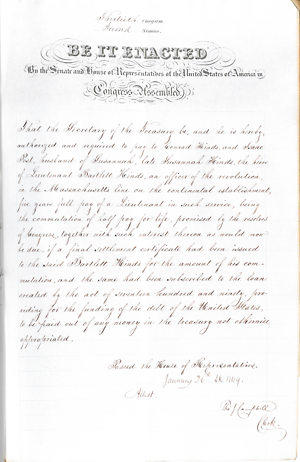 Thirtieth Congress
Second Session.
BE IT ENACTED
By the Senate and House of Representatives of the United States of America in
Congress Assembled,
That the Secretary of the Treasury be, and he is hereby,
authorized and required to pay to Conrad Hinds, and Isaac
Post, husband of Susannah, late Susannah Hinds, the heirs
of Lieutenant Bartlett Hinds, an officer of the revolution,
in the Massachusetts line on the continental establishment,
five years full pay of a Lieutenant in such service, being
the commutation of half pay for life, promised by the resolves
of Congress, together with such interest thereon as would now
be due, if a final settlement certificate had been issued
to the said Bartlett Hinds for the amount of his com-
mutation, and the same had been subscribed to the loan
created by the act of seventeen hundred and ninety, pro-
viding for the funding of the debt of the United States,
to be paid out of any money in the treasury not otherwise
appropriated.
Passed the House of Representatives,
January 1849.
Attest.
Campbell
Clerk.